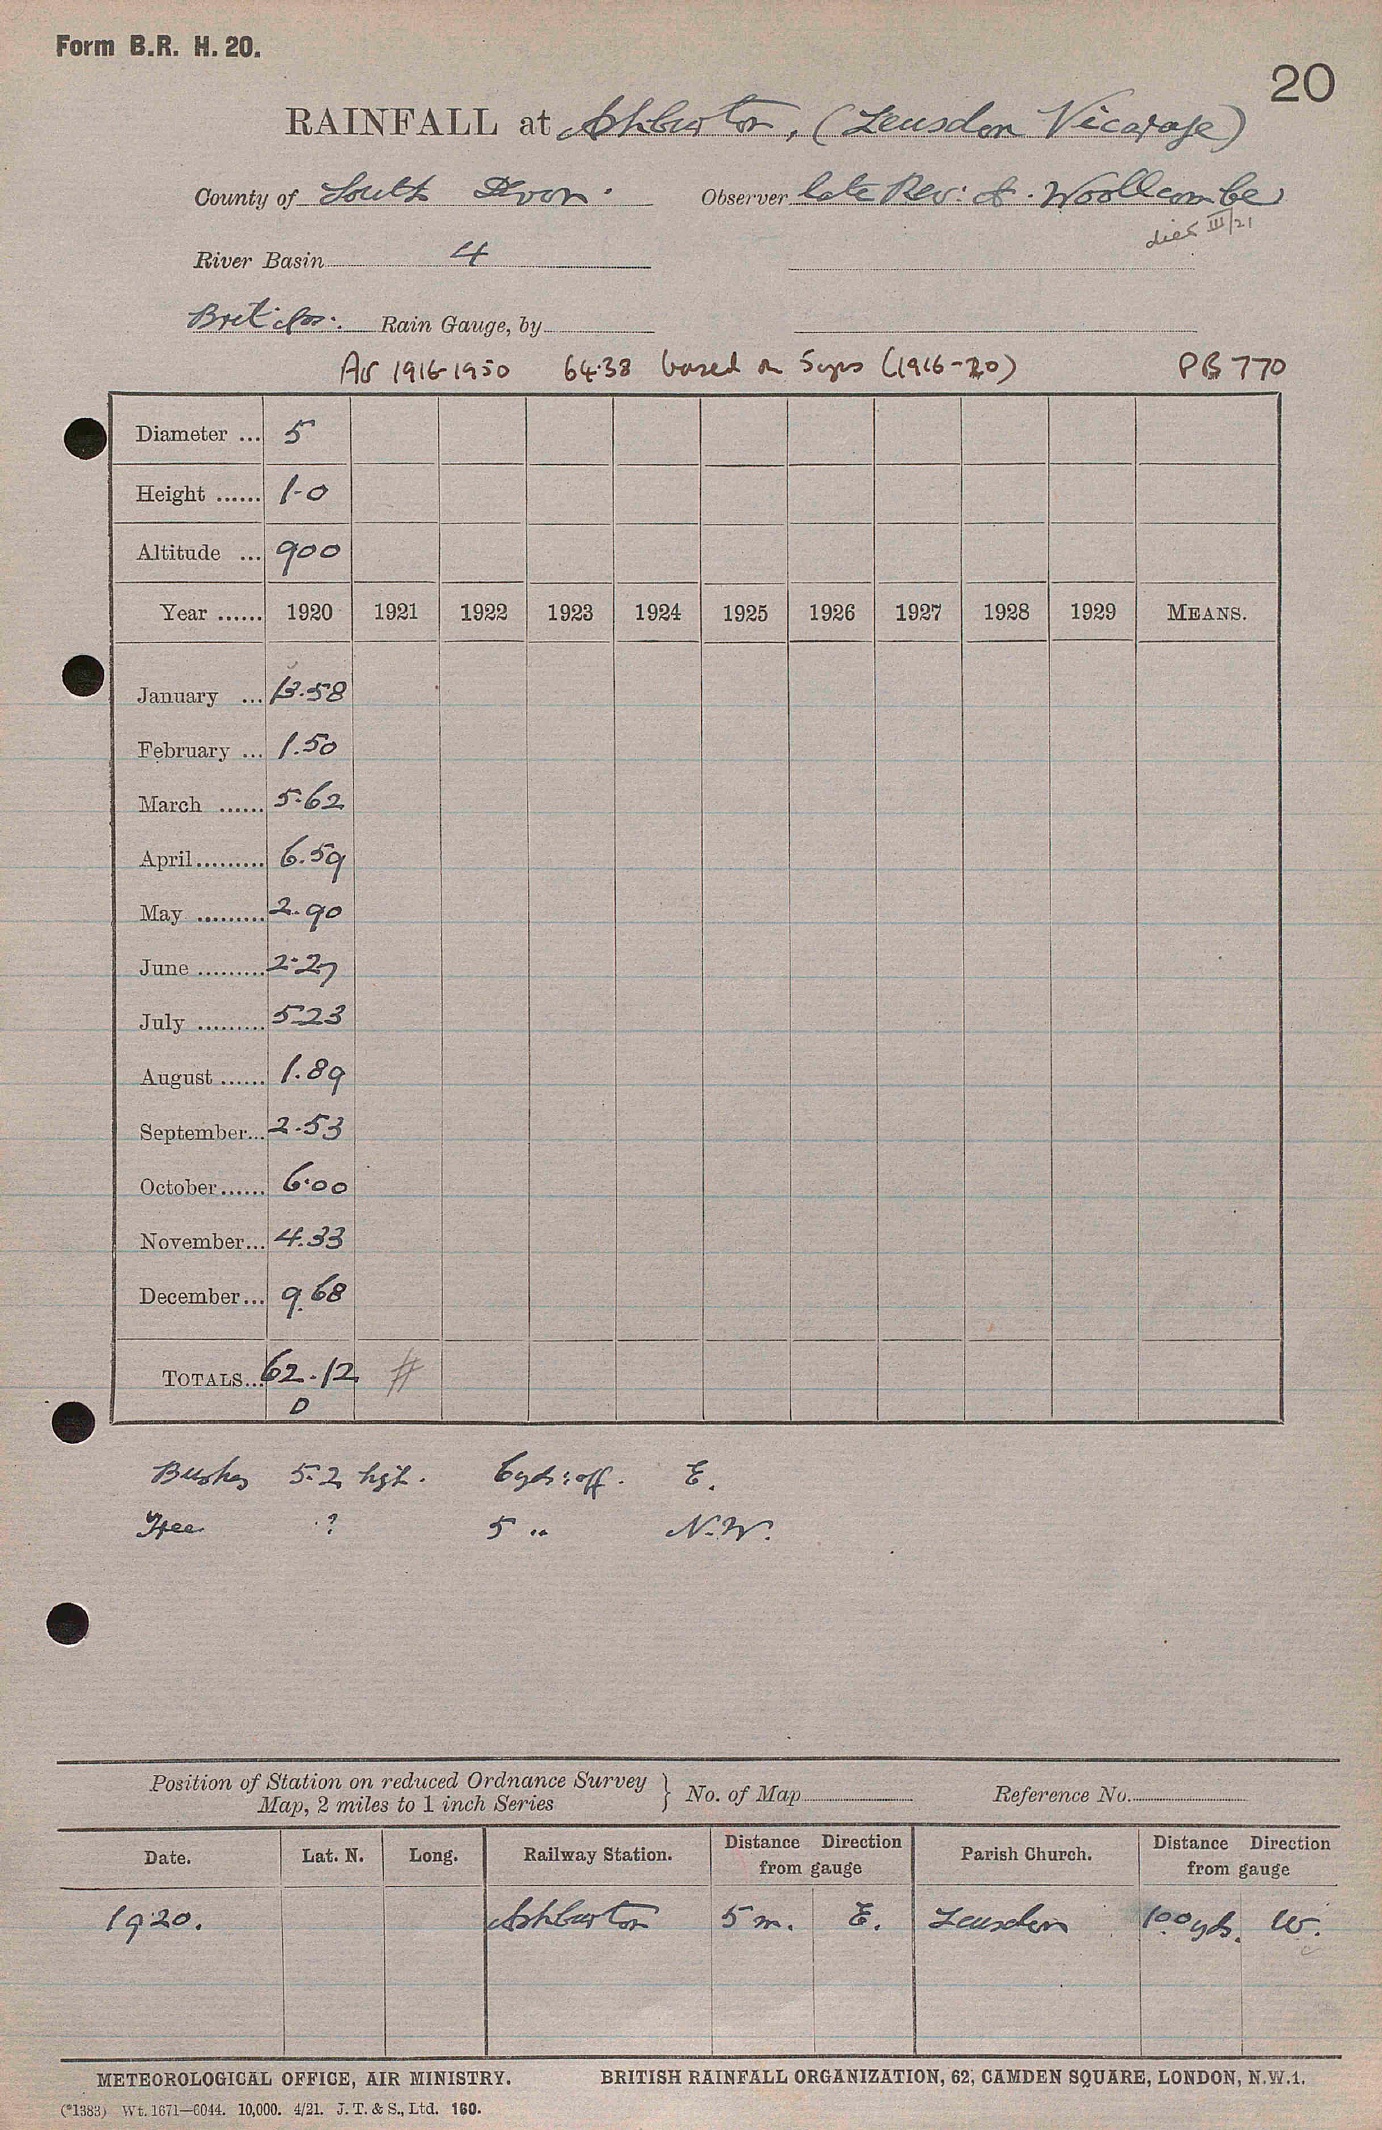 Form B.R. H. 20.
20
RAINFALL at Ashburton, (Leusdon Vicarage)
County of South Devon. Observer late Rev: A. Woollcombe
died III/21
River Basin 4
Rain Gauge, by
Av 1916-1950 64.38 based on 5 yrs (1916-20) PB 770
Diameter ... 5
Height ...... 1-0
Altitude ... 900
Year ...... 1920 1921 1922 1923 1924 1925 1926 1927 1928 1929 MEANS.
January ... 13.58
February ... 1.50
March ...... 5.62
April......... 6.59
May ......... 2.90
June ......... 2.27
July ......... 5.23
August ...... 1.89
September... 2.53
October...... 6.00
November... 4.33
December... 9.68
TOTALS... 62.12 #
D
Bushes 5.2 hgt. 6 yds: off. E.
Tree ? 5 „ N.W.
Position of Station on reduced Ordnance Survey Map, 2 miles to 1 inch Series } No. of Map Reference No.
Date. Lat. N. Long. Railway Station. Distance Direction from gauge Parish Church. Distance Direction from gauge
1920. Ashburton 5 m. E. Leusdon 100 yds. W.
METEOROLOGICAL OFFICE, AIR MINISTRY. BRITISH RAINFALL ORGANIZATION, 62, CAMDEN SQUARE, LONDON, N.W.1.
(*1383) Wt. 1671—6044. 10,000. 4/21. J. T. & S., Ltd. 160.